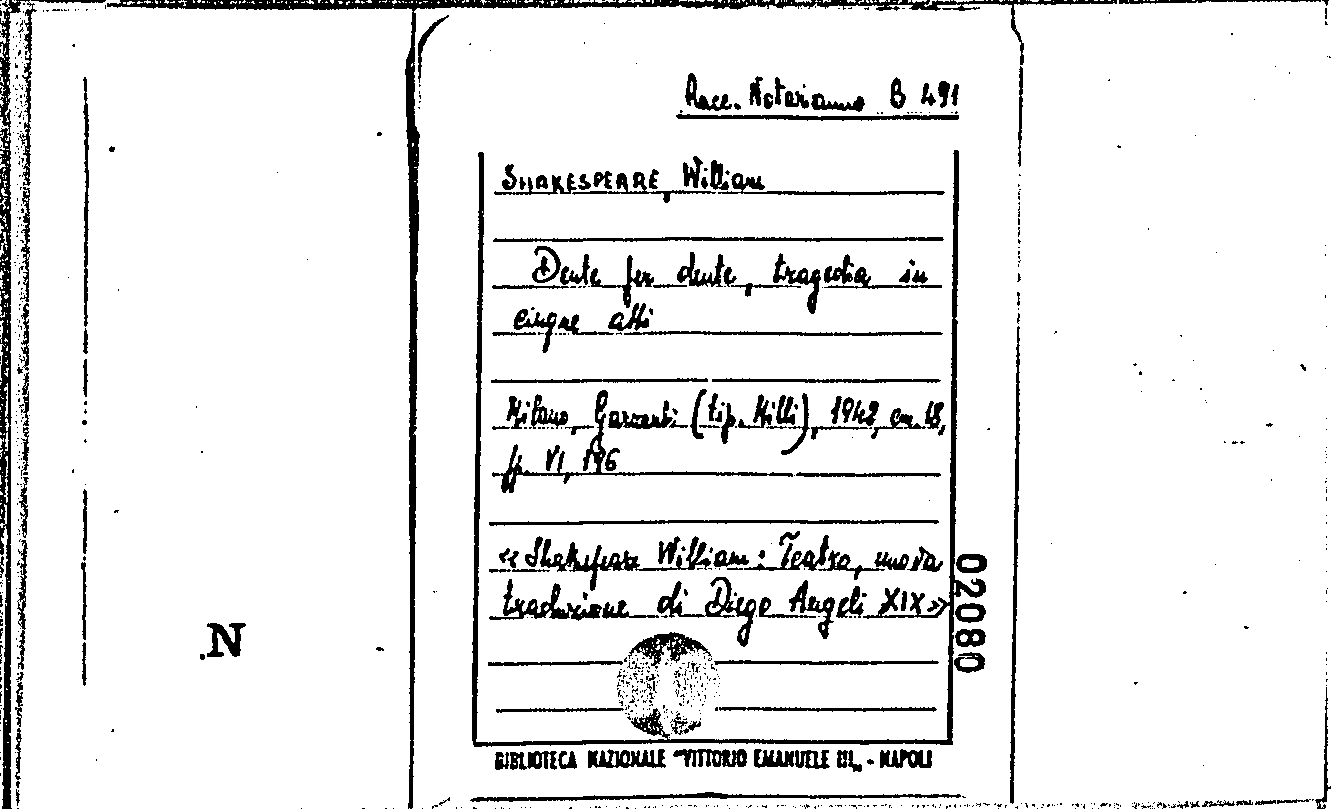 Racc. Notarianno B 491
SHAKESPEARE, William
Dente per dente, tragedia in
cinque atti
Milano, Garzanti (tip. Milli), 1942, cm. 18,
pp. VI, 196
« Shakespeare William: Teatro, nuova
traduzione di Diego Angeli XIX »
02080
.N
BIBLIOTECA NAZIONALE "VITTORIO EMANUELE III„ - NAPOLI